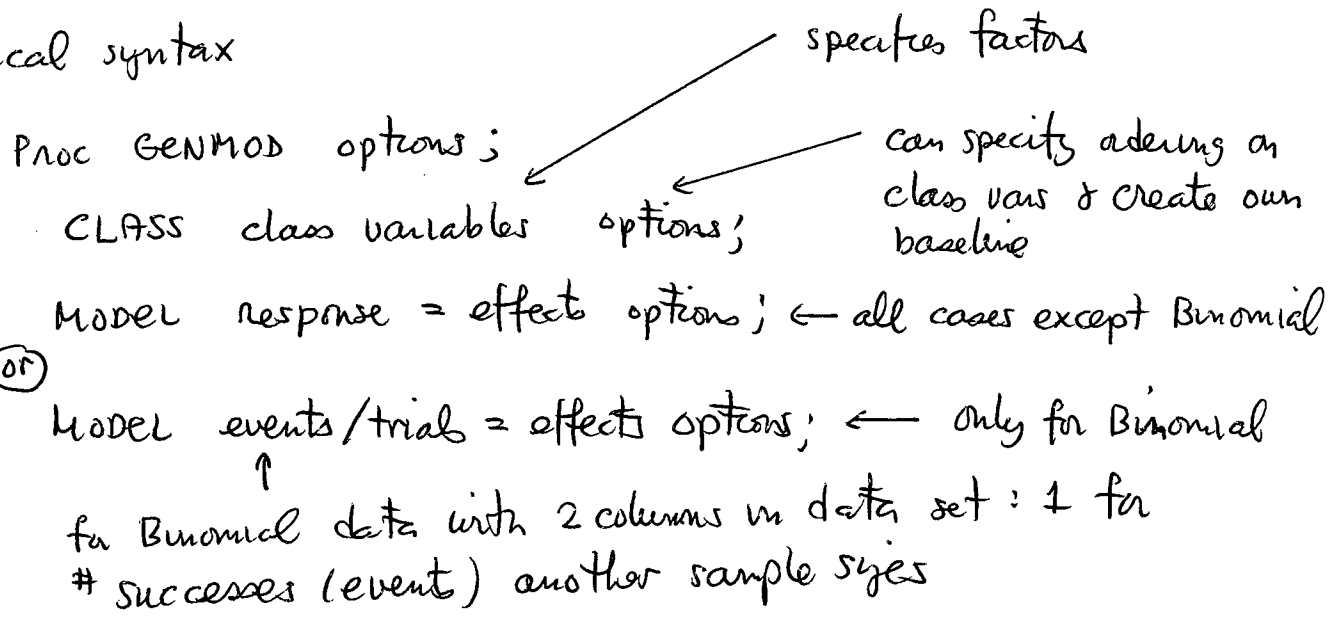 cal syntax
specifies factors
Proc GENMOD options;
can specify ordering on
class vars & create own
baseline
CLASS class variables options;
MODEL response = effects options; ← all cases except Binomial
or
MODEL events/trials = effects options; ← only for Binomial
↑
for Binomial data with 2 columns in data set : 1 for
# successes (event) another sample sizes